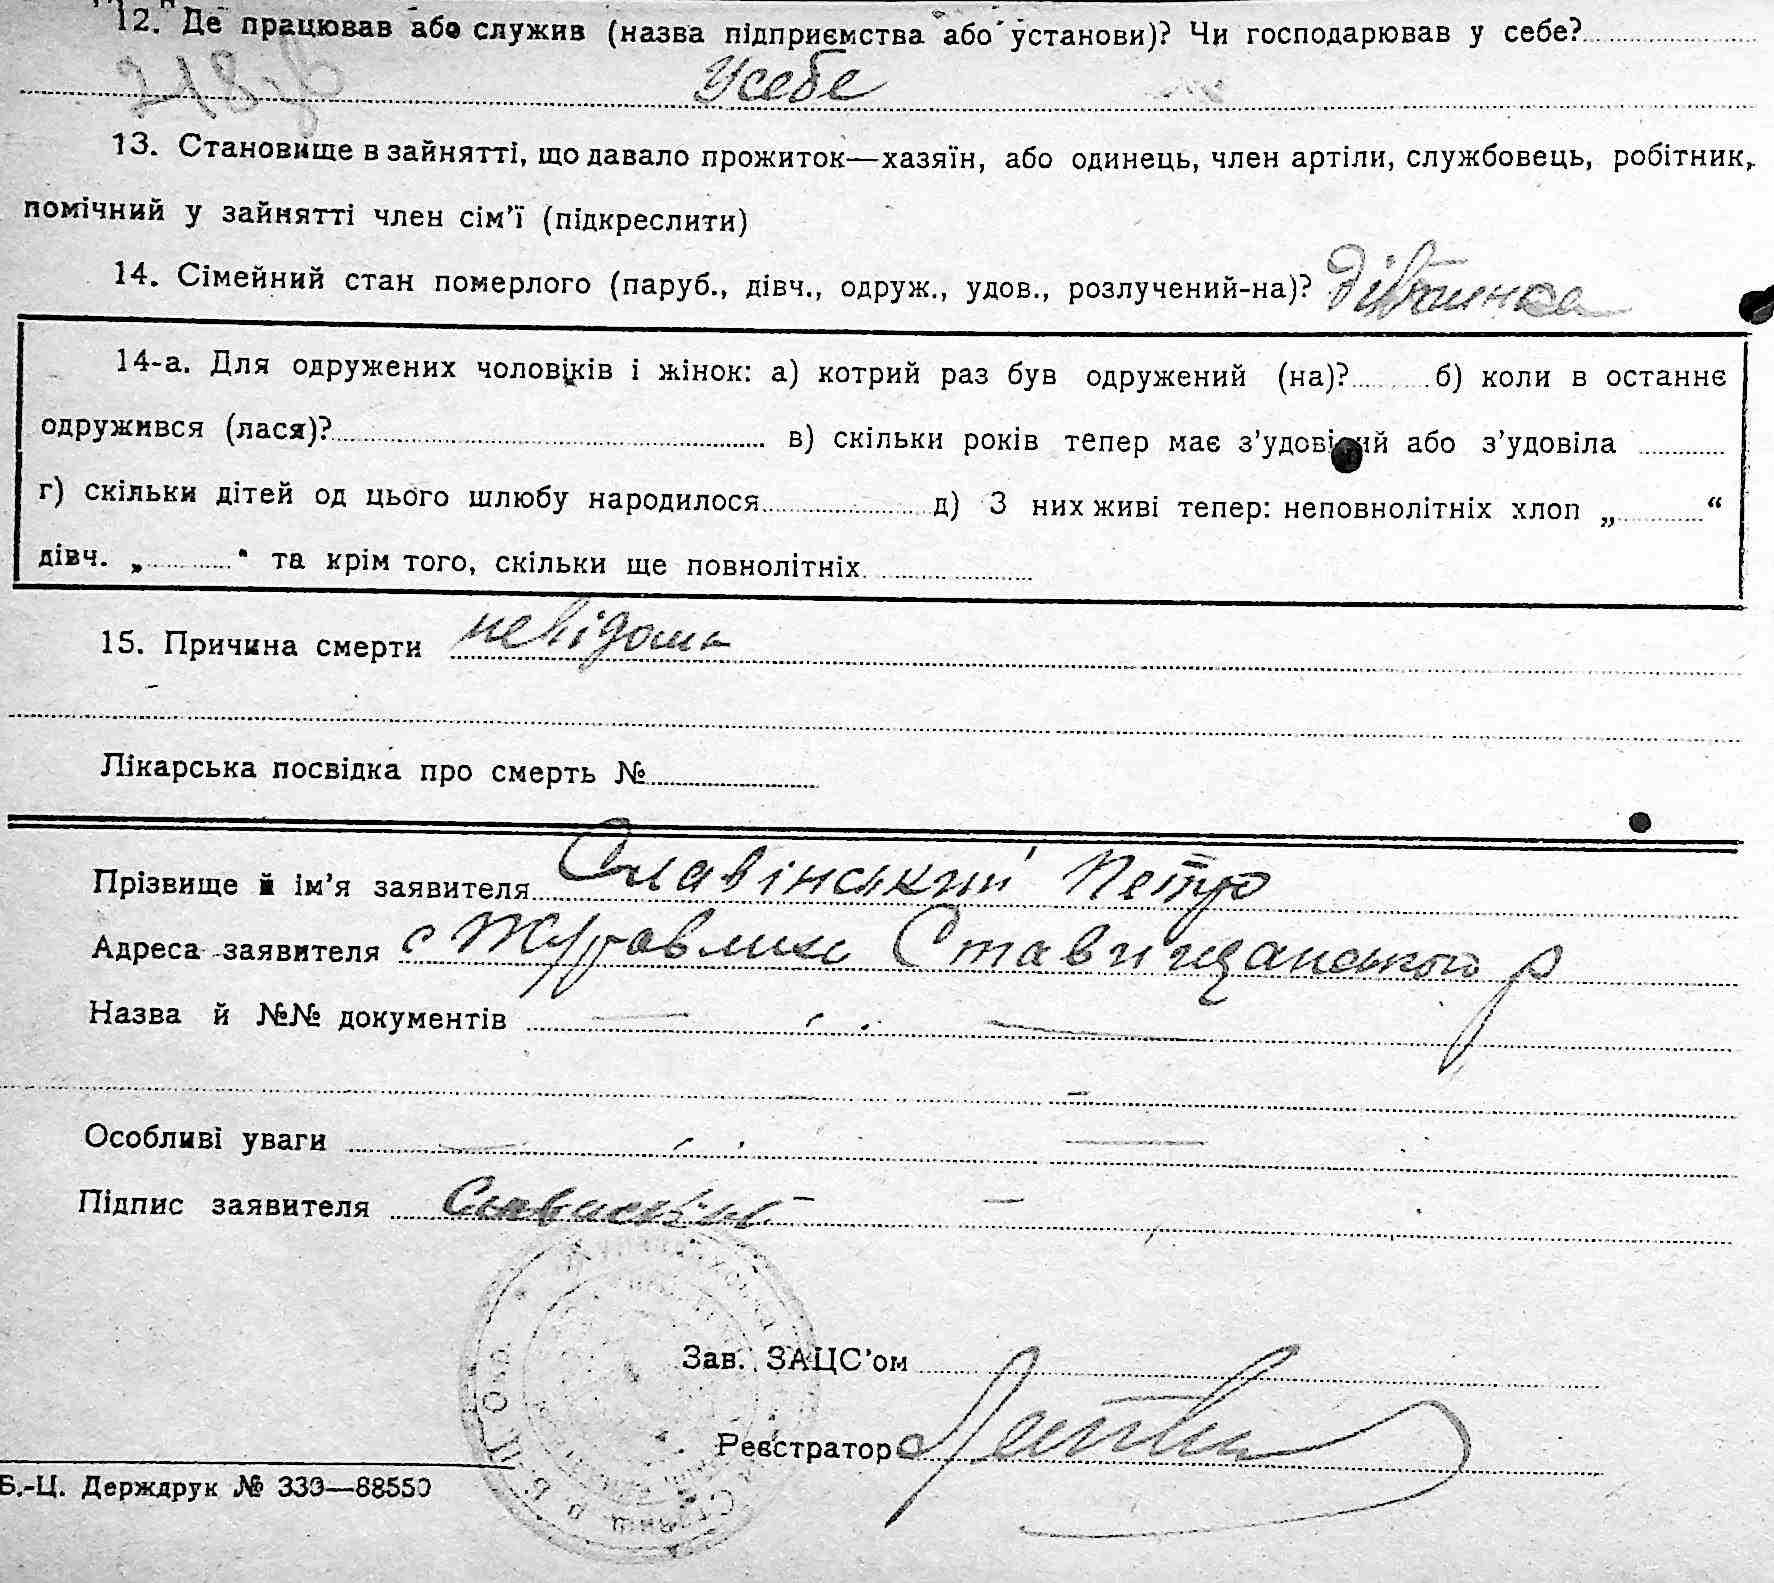 12. Де працював або служив (назва підприємства або установи)? Чи господарював у себе?
218зв
Усебе
13. Становище в зайнятті, що давало прожиток—хазяїн, або одинець, член артіли, службовець, робітник,
помічний у зайнятті член сім’ї (підкреслити)
14. Сімейний стан померлого (паруб., дівч., одруж., удов., розлучений-на)? дівчинка
14-а. Для одружених чоловіків і жінок: а) котрий раз був одружений (на)? б) коли в останнє
одружився (лася)? в) скільки років тепер має з’удовілий або з’удовіла
г) скільки дітей од цього шлюбу народилося д) З них живі тепер: неповнолітніх хлоп „ “
дівч. „ “ та крім того, скільки ще повнолітніх
15. Причина смерти невідома
Лікарська посвідка про смерть №
Прізвище й ім’я заявителя Славінський Петро
Адреса заявителя с Журавлиха Ставищанського р
Назва й №№ документів
Особливі уваги
Підпис заявителя
Зав. ЗАЦС’ом
Реєстратор
Б.-Ц. Держдрук № 339—88550